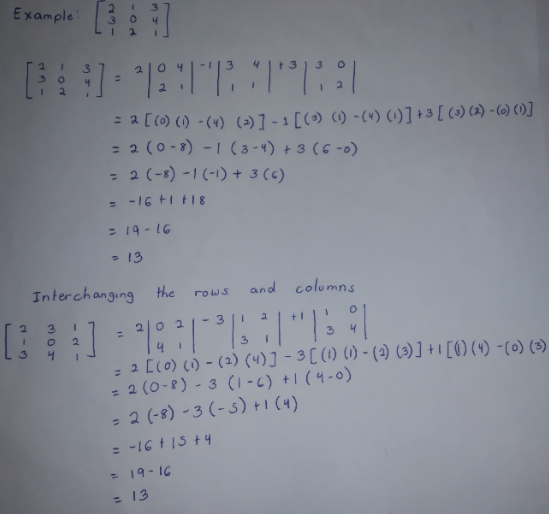 Example: [2 1 3
3 0 4
1 2 1]
[2 1 3
3 0 4
1 2 1] = 2 |0 4
2 1| -1 |3 4
1 1| +3 |3 0
1 2|
= 2 [(0) (1) - (4) (2)] - 1 [(3) (1) - (4) (1)] + 3 [(3) (2) - (0) (1)]
= 2 (0-8) - 1 (3-4) + 3 (6-0)
= 2 (-8) - 1 (-1) + 3 (6)
= -16 + 1 + 18
= 19 - 16
= 13
Interchanging the rows and columns
[2 3 1
1 0 2
3 4 1] = 2 |0 2
4 1| - 3 |1 2
3 1| +1 |1 0
3 4|
= 2 [(0) (1) - (2) (4)] - 3 [(1) (1) - (2) (3)] + 1 [(1) (4) - (0) (3)
= 2 (0-8) - 3 (1-6) + 1 (4-0)
= 2 (-8) - 3 (-5) + 1 (4)
= -16 + 15 + 4
= 19 - 16
= 13